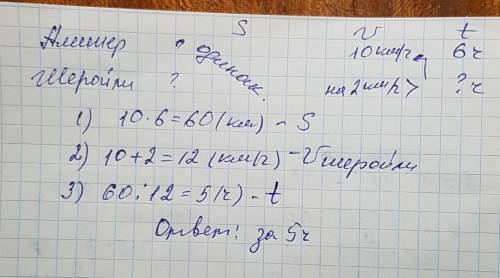 S V t
Алишер ? одинак. 10 км/ч 6ч
Шерайли ? на 2 км/ч > ?ч
1) 10·6=60(км) - S
2) 10+2=12(км/ч) - V шерайли
3) 60:12=5(ч) - t
Ответ: за 5ч